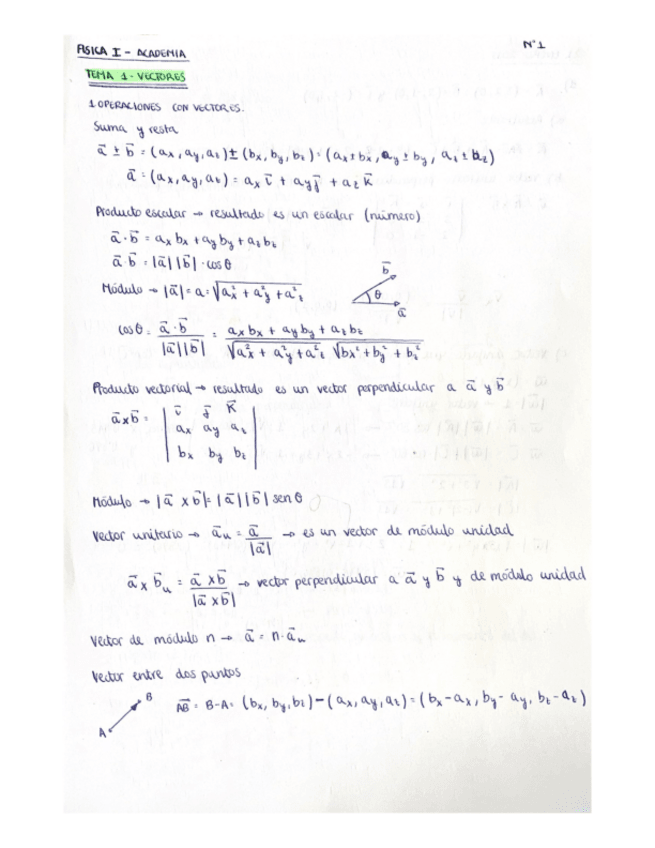 FISICA I - ACADEMIA
Nº1
TEMA 1 - VECTORES
1 OPERACIONES CON VECTORES.
Suma y resta
a⃗ ± b⃗ = (ax, ay, az) ± (bx, by, bz) = (ax ± bx, ay ± by, az ± bz)
a⃗ = (ax, ay, az) = ax i⃗ + ay j⃗ + az k⃗
Producto escalar → resultado es un escalar (número)
a⃗ · b⃗ = ax bx + ay by + az bz
a⃗ · b⃗ = |a⃗| |b⃗| · cos θ
Módulo → |a⃗| = a = √(ax² + ay² + az²)
b⃗
θ
a⃗
cos θ = (a⃗ · b⃗) / (|a⃗| |b⃗|) = (ax bx + ay by + az bz) / (√(ax² + ay² + az²) √(bx² + by² + bz²))
Producto vectorial → resultado es un vector perpendicular a a⃗ y b⃗
a⃗ x b⃗ = | i⃗ j⃗ k⃗
ax ay az
bx by bz |
Módulo → |a⃗ x b⃗| = |a⃗| |b⃗| sen θ
Vector unitario → a⃗u = a⃗ / |a⃗| → es un vector de módulo unidad
a⃗ x b⃗u = (a⃗ x b⃗) / |a⃗ x b⃗| → vector perpendicular a a⃗ y b⃗ y de módulo unidad
Vector de módulo n → a⃗ = n · a⃗u
Vector entre dos puntos
A B
AB⃗ = B - A = (bx, by, bz) - (ax, ay, az) = (bx - ax, by - ay, bz - az)